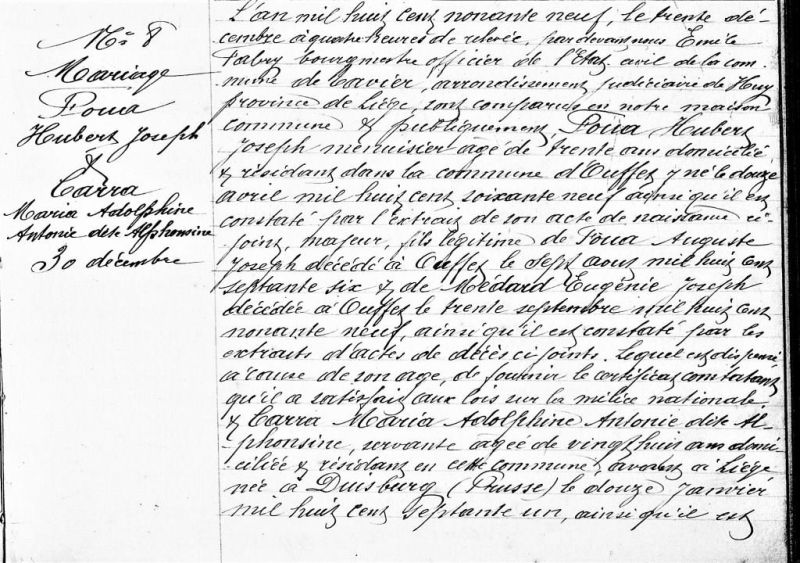 No 8
Mariage
Foua
Hubert Joseph
&
Carra
Maria Adolphine
Antonie dite Alphonsine
30 décembre
L'an mil huit cent nonante neuf, le trente dé-
cembre à quatre heures de relevée, par devant nous Emile
Fabry bourgmestre officier de l'Etat civil de la com-
mune de Tavier, arrondissement judiciaire de Huy
province de Liège, sont comparus en notre maison
commune & publiquement, Foua Hubert
Joseph menuisier agé de trente ans domicilié
& résidant dans la commune d'Ouffet y né le douze
avril mil huit cent soixante neuf ainsi qu'il est
constaté par l'extrait de son acte de naissance ci-
joint, majeur, fils légitime de Foua Auguste
Joseph décédé à Ouffet le sept aout mil huit cent
septante six & de Médard Eugénie Joseph
décédée à Ouffet le trente septembre mil huit cent
nonante neuf, ainsi qu'il est constaté par les
extraits d'actes de décès ci joints. Lequel est dispensé
à cause de son age, de fournir le certificat constatant
qu'il a satisfait aux lois sur la milice nationale.
& Carra Maria Adolphine Antonie dite Al-
phonsine, servante agée de vingt huit ans domi-
ciliée & résidant en cette commune, avant à Liège
née à Duisburg (Prusse) le douze Janvier
mil huit cent septante un, ainsi qu'il est